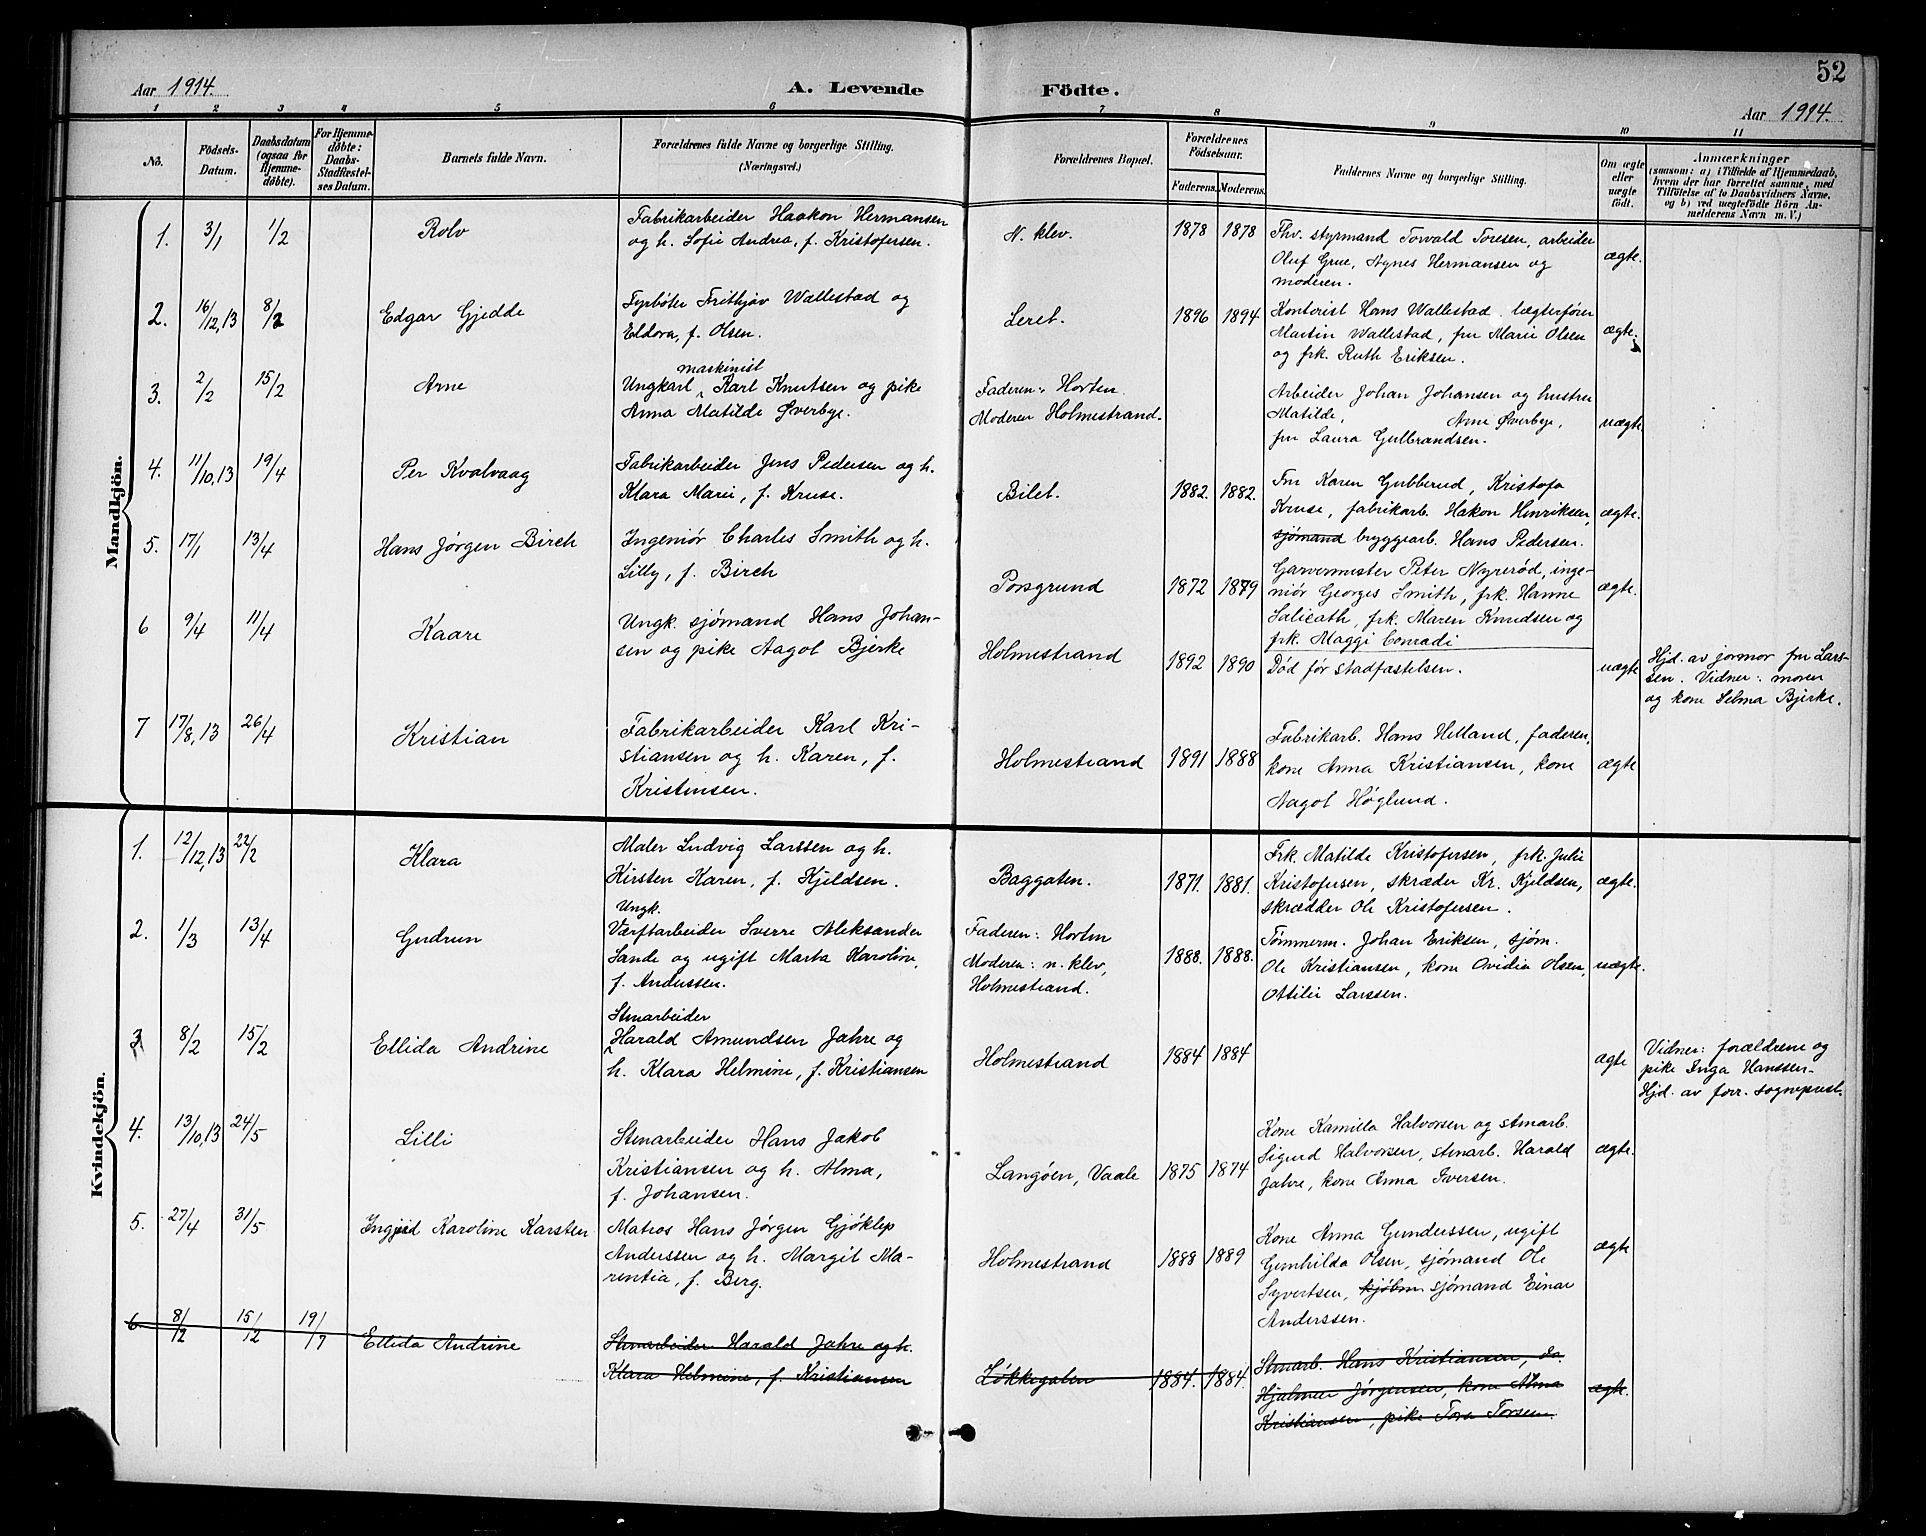 52
Aar 1914. A. Levende Födte. Aar 1914.
1 2 3 4 5 6 7 8 9 10 11
No. Födsels-Datum. Daabsdatum (ogsaa for Hjemme-döbte). For Hjemme-döbte: Daabs-Stadfæstel-ses Datum. Barnets fulde Navn. Forældrenes fulde Navne og borgerlige Stilling. (Næringsvei.) Forældrenes Bopæl. Forældrenes Födselsaar. Faderens. Moderens. Faddernes Navne og borgerlige Stilling. Om ægte eller uægte födt. Anmærkninger (saasom: a) i Tilfælde af Hjemmedaab, hvem der har forrettet samme, med Tilföielse af to Daabsvidners Navne, og b) ved uægtefödte Börn An-melderens Navn m. V.)
Mandkjön.
1. 3/1 1/2 Rolv
Fabrikarbeider Haakon Hermansen
og h. Sofie Andrea, f. Kristofersen.
N. klev. 1878 1878
Fhv. styrmand Torvald Toresen, arbeider
Oluf Grue, Agnes Hermansen og
moderen.
ægte.
2. 16/12,13 8/2 Edgar Gjedde
Fyrbøter Frithjov Wallestad og
Eldora, f. Olsen.
Leret. 1896 1894
Kontorist Hans Wallestad, lægterfører
Martin Wallestad, fru Marie Olsen
og frk. Ruth Eriksen.
ægte.
3. 2/2 15/2 Arne
maskinist
Ungkarl Karl Knutsen og pike
Anna Matilde Øverbye.
Faderen: Horten
Moderen Holmestrand.
Arbeider Johan Johansen og hustru
Matilde, Arne Øverbye,
fru Laura Gulbrandsen.
uægte.
4. 11/10,13 19/4 Per Kvalvaag
Fabrikarbeider Jens Pedersen og h.
Klara Marie, f. Kruse.
Bilet. 1882. 1882.
Fru Karen Gubberud, Kristofa
Kruse, fabrikarb. Hakon Hinriksen,
sjømand bryggearb. Hans Pedersen.
ægte.
5. 17/1 13/4 Hans Jørgen Birch
Ingeniør Charles Smith og h.
Lilly, f. Birch
Porsgrund 1872 1879
Garvermester Peter Nyrerød, inge-
niør Georges Smith, frk. Hanne
Salicath, frk. Maren Knudsen og
frk. Maggi Conradi
ægte.
6 9/4 11/4 Kaare
Ungk. sjømand Hans Johan-
sen og pike Aagot Bjerke
Holmestrand 1892 1890
Død før stadfæstelsen.
uægte
Hjd. av jormor fru Lars-
sen. Vidner: moren
og kone Selma Bjerke.
7 17/8,13 26/4 Kristian
Fabrikarbeider Karl Kri-
stiansen og h. Karen, f.
Kristensen.
Holmestrand 1891 1888
Fabrikarb. Hans Helland, faderen,
kone Anna Kristiansen, kone
Aagot Høglund.
ægte
Kvindekjön.
1. 12/12,13 22/2 Klara
Maler Ludvig Larssen og h.
Kirsten Karen, f. Kjeldsen.
Baggaten. 1871. 1881.
Frk. Matilde Kristofersen, frk. Julie
Kristofersen, skræder Kr. Kjeldsen,
skrædder Ole Kristofersen.
ægte.
2. 1/3 13/4 Gudrun
Ungk.
Værftarbeider Sverre Aleksander
Sande og ugift Marta Karoline,
f. Anderssen.
Faderen: Horten
Moderen: n. klev,
Holmestrand.
1888. 1888.
Tømmerm. Johan Eriksen, sjøm.
Ole Kristiansen, kone Ovidia Olsen,
Ottilie Larssen.
uægte.
3 8/2 15/2 Ellida Andrine
Stenarbeider
Harald Amundsen Jahre og
h. Klara Helmine, f. Kristiansen
Holmestrand 1884 1884
ægte
Vidner: forældrene og
pike Inga Hanssen.
Hjd. av forr. sogneprest.
4. 13/10,13 24/5 Lilli
Stenarbeider Hans Jakob
Kristiansen og h. Alma,
f. Johansen.
Langøen, Vaale 1875 1874
Kone Kamilla Halvorsen og stenarb.
Sigurd Halvorsen, stenarb. Harald
Jahre, kone Anna Iversen.
ægte.
5. 27/4 31/5 Ingrid Karoline Karsten
Matros Hans Jørgen Gjøklep
Anderssen og h. Margit Ma-
rentia, f. Berg.
Holmestrand 1888 1889
Kone Anna Gunderssen, ugift
Gunhilda Olsen, sjømand Ole
Syvertsen, sjømand Einar
Anderssen.
ægte
6. 8/2 15/12 19/7 Ellida Andrine
Stenarbeider Harald Jahre og h.
Klara Helmine, f. Kristiansen
Løkkegaten 1884. 1884.
Stenarb. Hans Kristiansen, do.
Hjalmar Jørgensen, kone Alma
Kristiansen, pike Tora Torsen.
ægte.